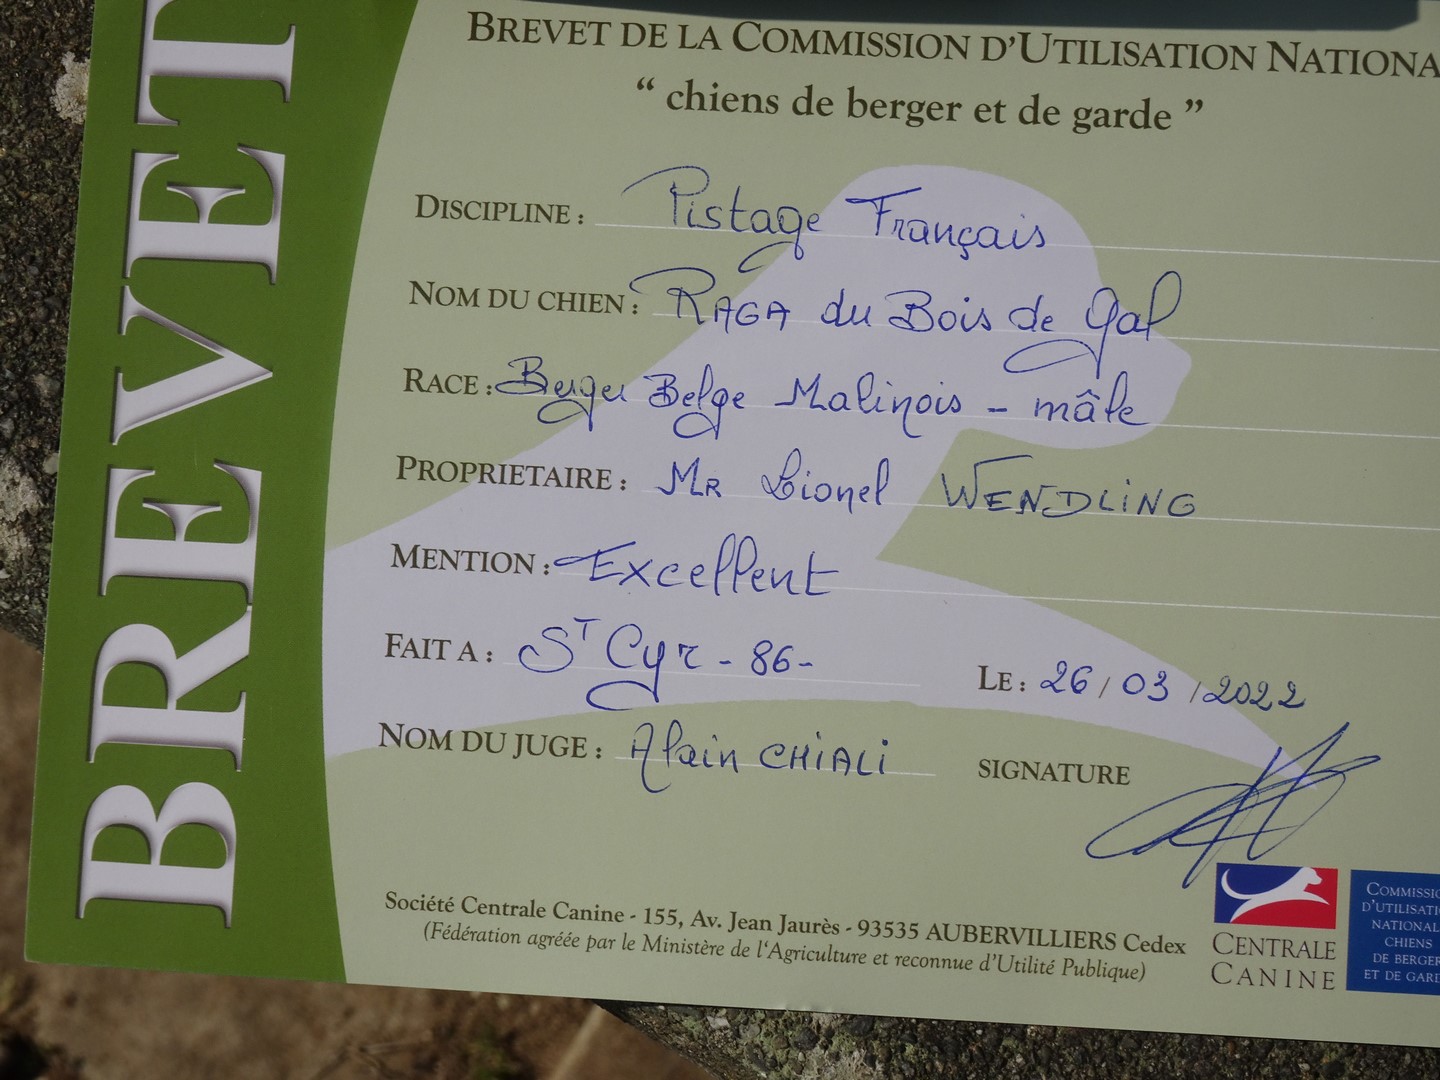 BREVET
BREVET DE LA COMMISSION D'UTILISATION NATIONA
“ chiens de berger et de garde ”
DISCIPLINE : Pistage Français
NOM DU CHIEN : RAGA du Bois de Gal
RACE : Berger Belge Malinois - mâle
PROPRIETAIRE : MR Lionel WENDLING
MENTION : Excellent
FAIT A : ST Cyr - 86-
LE : 26/03/2022
NOM DU JUGE : Alain CHIALI
SIGNATURE
Société Centrale Canine - 155, Av. Jean Jaurès - 93535 AUBERVILLIERS Cedex
(Fédération agréée par le Ministère de l'Agriculture et reconnue d'Utilité Publique)
CENTRALE
CANINE
COMMISSIO
D'UTILISATI
NATIONAL
CHIENS
DE BERGER
ET DE GARD